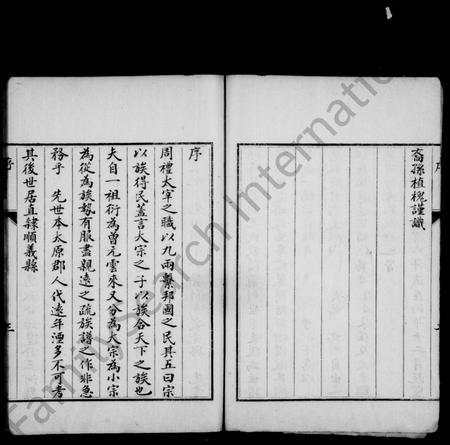 裔孫植槐謹識
序
周禮太宰之職以九兩繫邦國之民其五曰宗
以族得民蓋言大宗之子以族合天下之族也
夫自一祖衍為曾元雲來又分為大宗為小宗
為從為族勢有服盡親遠之疏族譜之作非急
務乎 先世本太原郡人代遠年湮多不可考
其後世居直隸順義縣
序
三
FamilySearch International